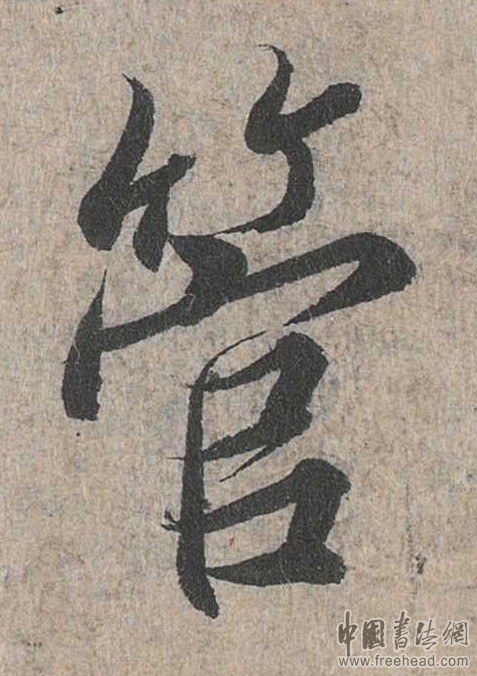 管
中國書法網
www.freehead.com